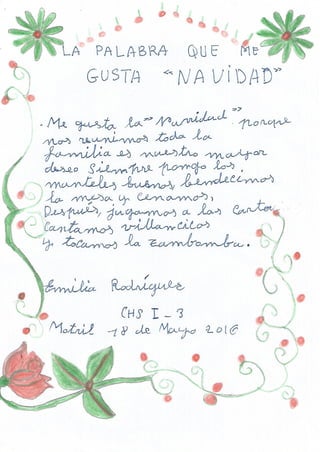 LA PALABRA QUE ME
GUSTA "NAVIDAD"
. Me gusta la "Navidad" porque
nos reunimos toda la
familia es nuestro mayor
deseo Siempre pongo los
manteles buenos bendecimos
la mesa y cenamos,
Después, jugamos a las carta,
cantamos villancicos
y tocamos la zambamba.
Emilia Rodríguez
CHS I - 3
Motril 18 de Mayo 2016